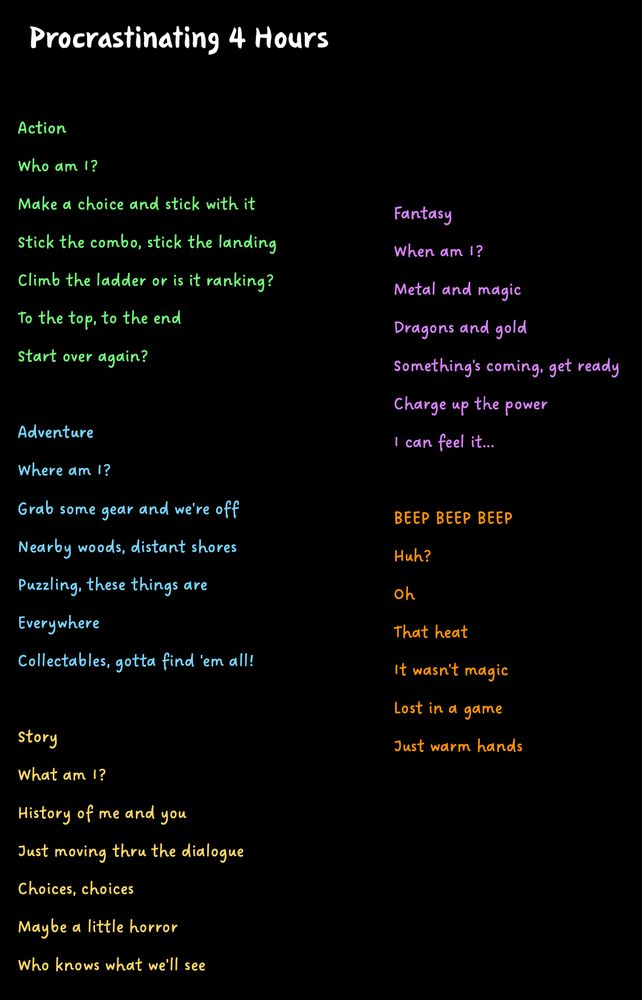 Procrastinating 4 Hours
Action
Who am I?
Make a choice and stick with it
Stick the combo, stick the landing
Climb the ladder or is it ranking?
To the top, to the end
Start over again?
Adventure
Where am I?
Grab some gear and we're off
Nearby woods, distant shores
Puzzling, these things are
Everywhere
Collectables, gotta find 'em all!
Story
What am I?
History of me and you
Just moving thru the dialogue
Choices, choices
Maybe a little horror
Who knows what we'll see
Fantasy
When am I?
Metal and magic
Dragons and gold
Something's coming, get ready
Charge up the power
I can feel it...
BEEP BEEP BEEP
Huh?
Oh
That heat
It wasn't magic
Lost in a game
Just warm hands